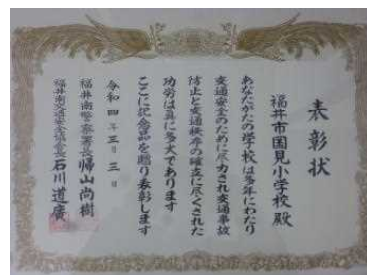 表彰状
福井市国見小学校殿
あなたがたの学校は多年にわたり
交通安全のために尽力され交通事故
防止と交通秩序の確立に尽くされた
功労は真に多大であります
ここに記念品を贈り表彰します
令和四年三月三日
福井南警察署長 帰山尚樹
福井南交通安全協会長 石川道廣